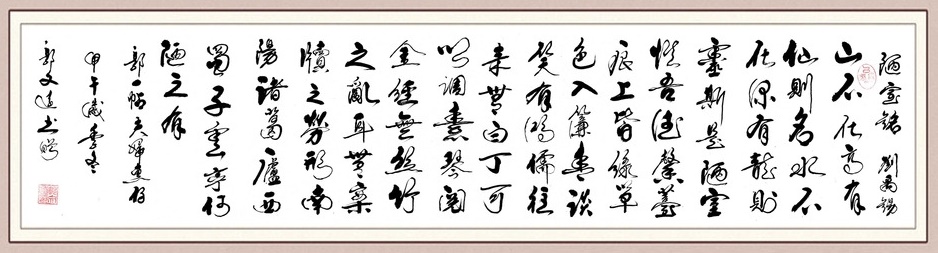 陋室銘 劉禹錫
山不在高有
仙則名水不
在深有龍則
靈斯是陋室
惟吾德馨苔
痕上階綠草
色入簾青談
笑有鴻儒往
來無白丁可
以調素琴閱
金經無絲竹
之亂耳無案
牘之勞形南
陽諸葛廬西
蜀子雲亭何
陋之有
夫婦惠存
甲午歲季冬
郭文達書贈